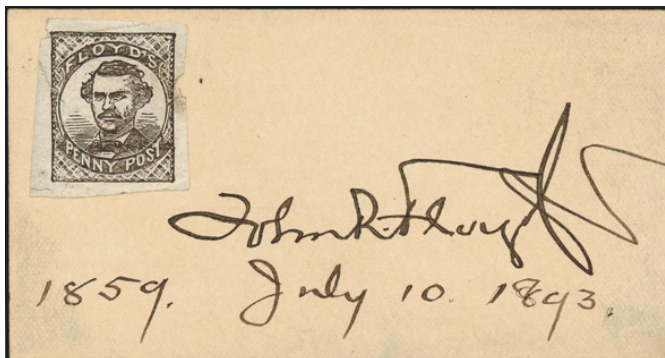 FLOYD'S
PENNY POST
John R. Floyd
1859. July 10. 1893.